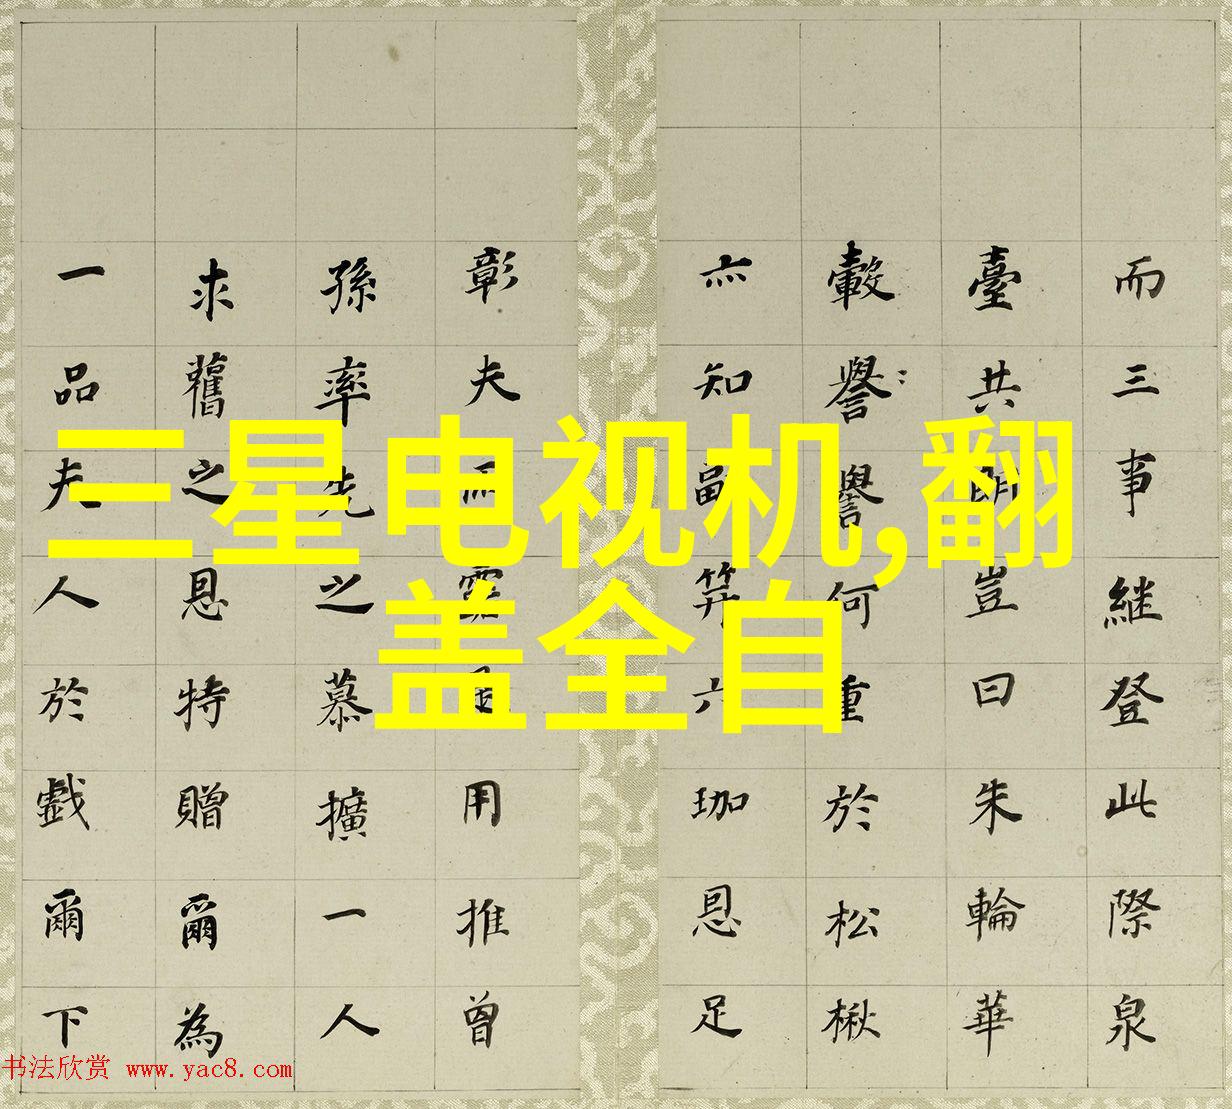 三星电视机,翻
盖全自
而三事継登此際泉
臺共明豈曰朱輪華
轂譽譽何重於松楸
亦知副笄六珈恩足
彰夫用推曾
孫率先之慕擴一人
求舊之恩特贈爾為
一品夫人於戲爾下
书法欣赏 www.yac8.com